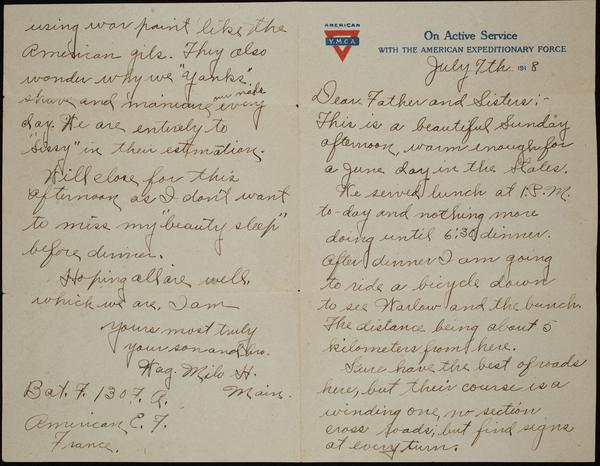 AMERICAN
Y.M.C.A.
On Active Service
WITH THE AMERICAN EXPEDITIONARY FORCE
July 7th 1918
Dear Father and Sisters;-
This is a beautiful Sunday
afternoon, warm enough for
a June day in the States.
We served lunch at 1.P.M.
to-day and nothing more
doing until 6:30 dinner.
After dinner I am going
to ride a bicycle down
to see Warlow and the bunch.
The distance being about 5
kilometers from here.
Sure have the best of roads
here, but their course is a
winding one, no section
cross roads, but find signs
at every turn.
using war paint like the
American gils. They also
wonder why we "Yanks"
shave and manicure our nails every
day. We are entirely to
"Sissy" in their estimation.
Will close for this
afternoon as I don't want
to miss my "beauty sleep"
before dinner.
Hoping all are well,
which we are, I am
Yours most truly
your son and bro.
Wag. Milo H.
Main.
Bat. F. 130 F. A.
American E. F.
France.